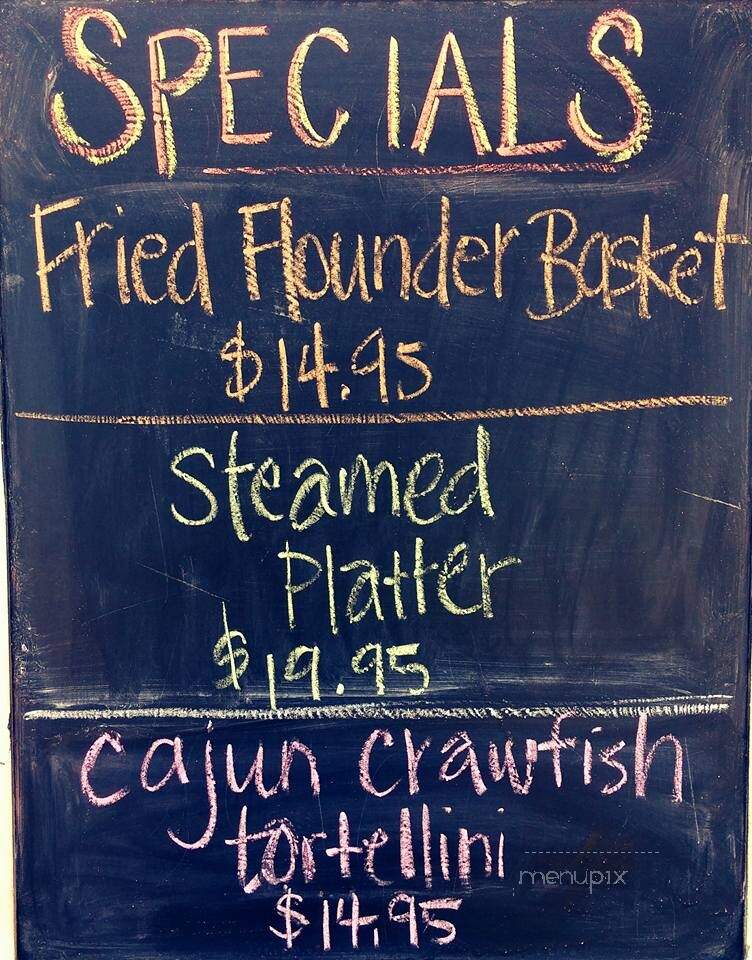 SPECIALS
Fried Flounder Basket
$14.95
Steamed
Platter
$19.95
cajun crawfish
tortellini
$14.95
menupix